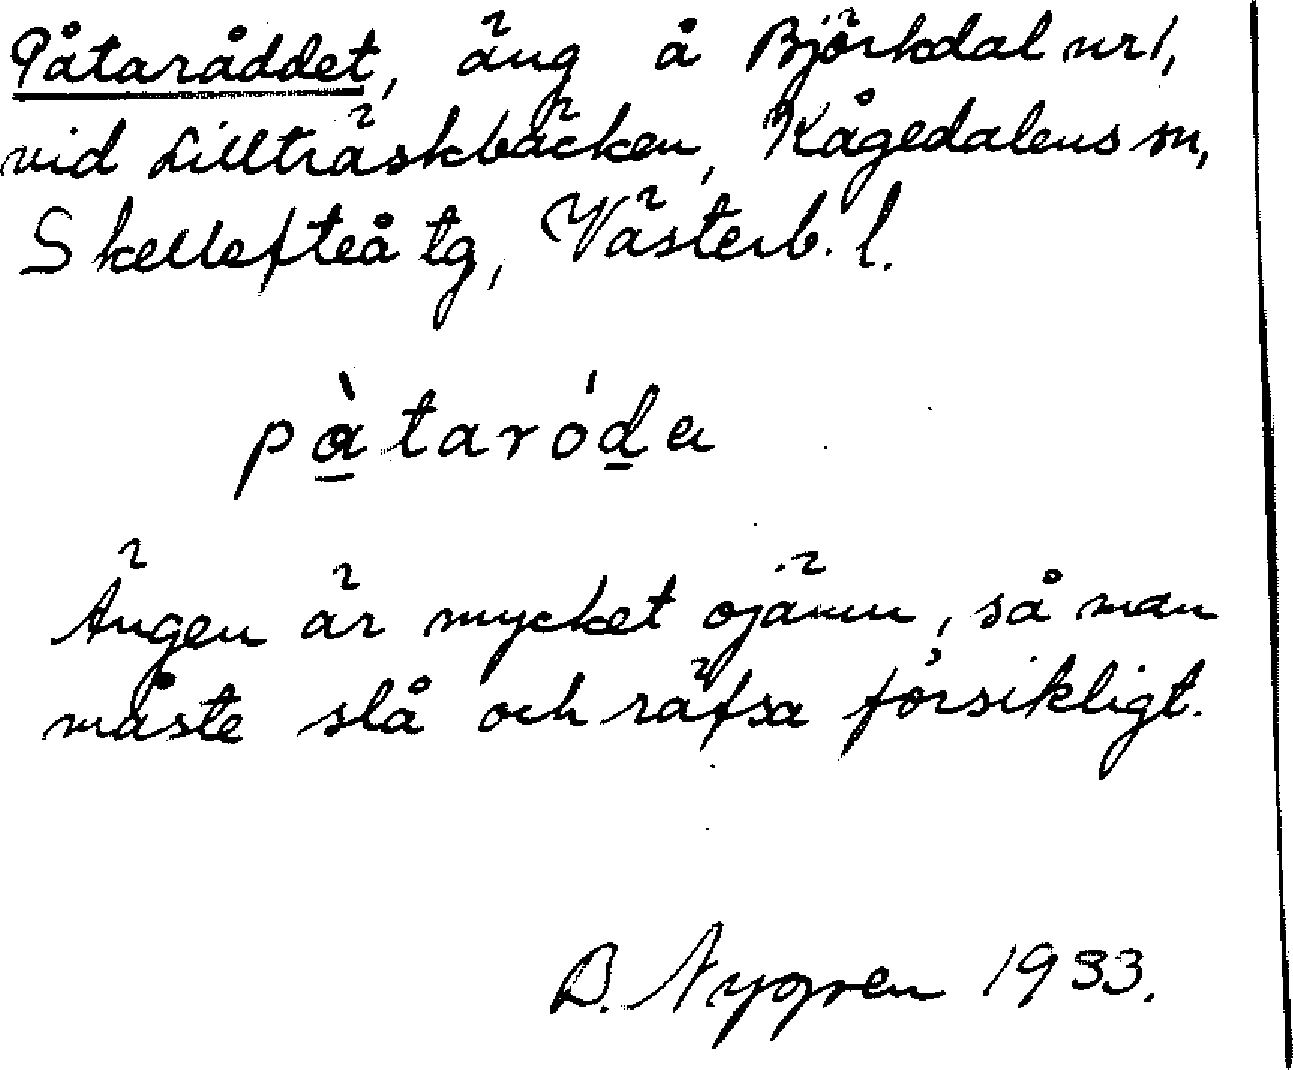 Påtaråddet, äng å Björkdal nr 1,
vid Lillträskbäcken, Kågedalens sn,
Skellefteå tg, Västerb. l.
pà̱taróḏa
Ängen är mycket ojämn, så man
måste slå och räfsa försikligt.
B. Nygren 1933.